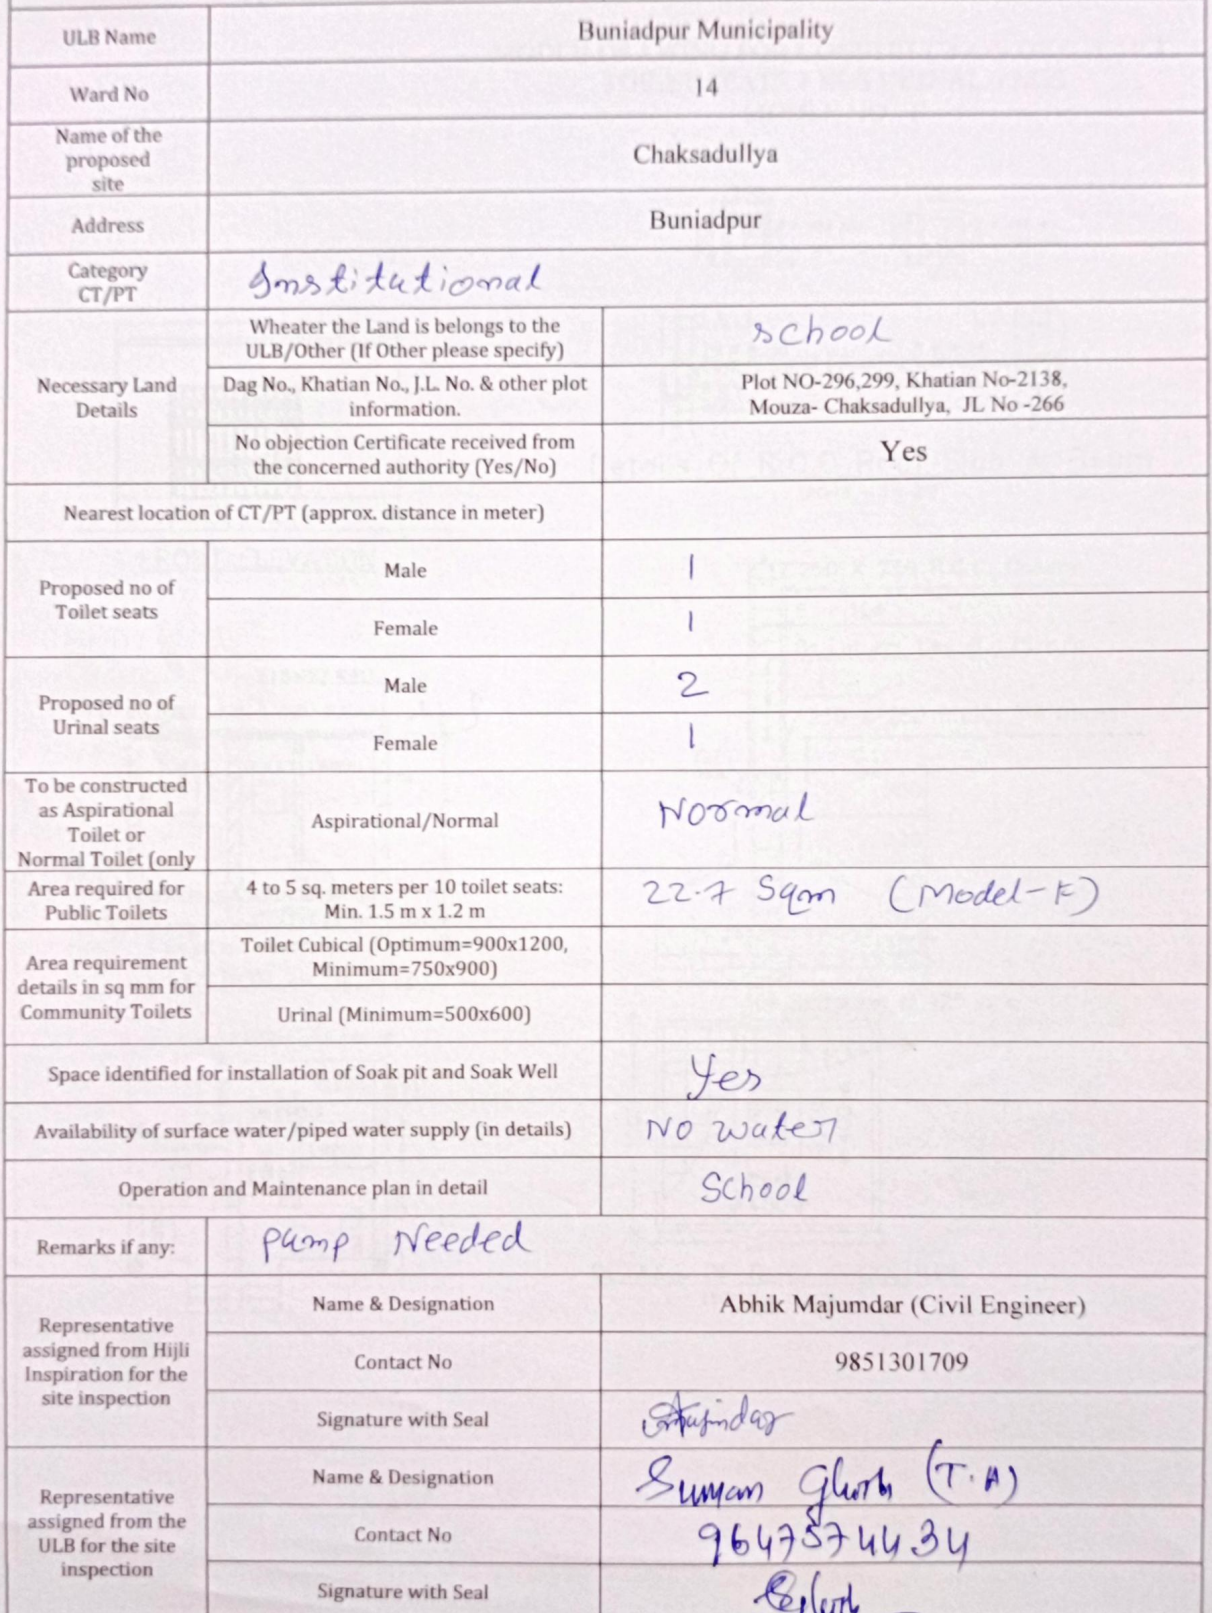 ULB Name
Buniadpur Municipality
Ward No
14
Name of the
proposed
site
Chaksadullya
Address
Buniadpur
Category
CT/PT
Institutional
Necessary Land
Details
Wheater the Land is belongs to the
ULB/Other (If Other please specify)
school
Dag No., Khatian No., J.L. No. & other plot
information.
Plot NO-296,299, Khatian No-2138,
Mouza- Chaksadullya, JL No -266
No objection Certificate received from
the concerned authority (Yes/No)
Yes
Nearest location of CT/PT (approx. distance in meter)
Proposed no of
Toilet seats
Male
1
Female
1
Proposed no of
Urinal seats
Male
2
Female
1
To be constructed
as Aspirational
Toilet or
Normal Toilet (only
Aspirational/Normal
Normal
Area required for
Public Toilets
4 to 5 sq. meters per 10 toilet seats:
Min. 1.5 m x 1.2 m
22.7 Sqm (Model-F)
Area requirement
details in sq mm for
Community Toilets
Toilet Cubical (Optimum=900x1200,
Minimum=750x900)
Urinal (Minimum=500x600)
Space identified for installation of Soak pit and Soak Well
Yes
Availability of surface water/piped water supply (in details)
NO water
Operation and Maintenance plan in detail
School
Remarks if any:
pump Needed
Representative
assigned from Hijli
Inspiration for the
site inspection
Name & Designation
Abhik Majumdar (Civil Engineer)
Contact No
9851301709
Signature with Seal
Representative
assigned from the
ULB for the site
inspection
Name & Designation
Suman Ghosh (T.A)
Contact No
9647574434
Signature with Seal